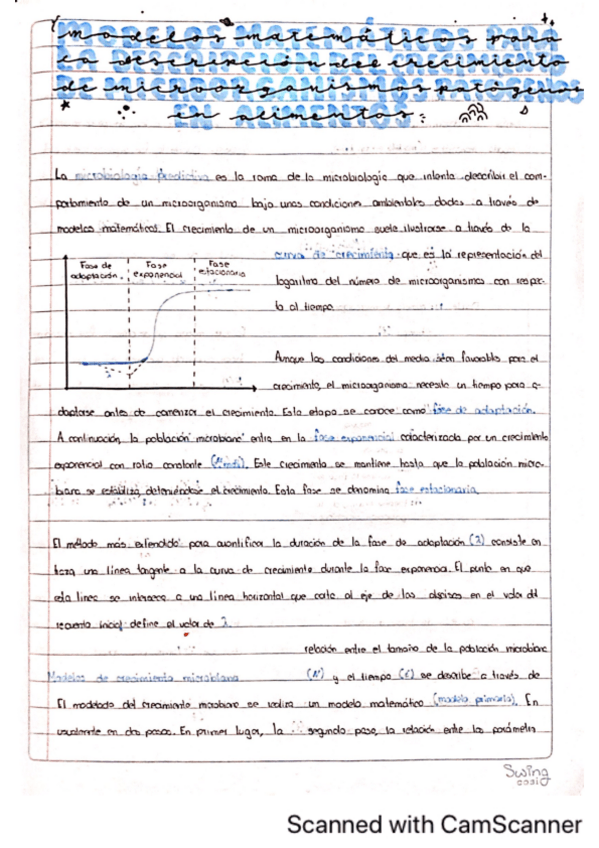 modelos matemáticos para
la descripción del crecimiento
de microorganismos patógenos
en alimentos:
La microbiología predictiva es la rama de la microbiología que intenta describir el com-
portamiento de un microorganismo bajo unas condiciones ambientales dadas a través de
modelos matemáticos. El crecimiento de un microorganismo suele ilustrarse a través de la
curva de crecimiento que es la representación del
logaritmo del número de microorganismos con respec-
to al tiempo.
Fase de adaptación
Fase exponencial
Fase estacionaria
Aunque las condiciones del medio sean favorables para el
crecimiento, el microorganismo necesita un tiempo para a-
daptarse antes de comenzar el crecimiento. Esta etapa se conoce como fase de adaptación.
A continuación, la población microbiana entra en la fase exponencial caracterizada por un crecimiento
exponencial con ratio constante. Este crecimiento se mantiene hasta que la población micro-
biana se estabiliza deteniéndose el crecimiento. Esta fase se denomina fase estacionaria.
El método más extendido para cuantificar la duración de la fase de adaptación (λ) consiste en
una línea tangente a la curva de crecimiento durante la fase exponencial. El punto en que
esta línea se interseca a una línea horizontal que corta al eje de las abscisas en el valor del
recuento inicial define el valor de λ.
relación entre el tamaño de la población microbiana
Modelos de crecimiento microbiano (N) y el tiempo (t) se describe a través de
El modelado del crecimiento microbiano se realiza un modelo matemático (modelo primario). En
usualmente en dos pasos. En primer lugar, la segundo paso, la relación entre los parámetros
Swing
Scanned with CamScanner